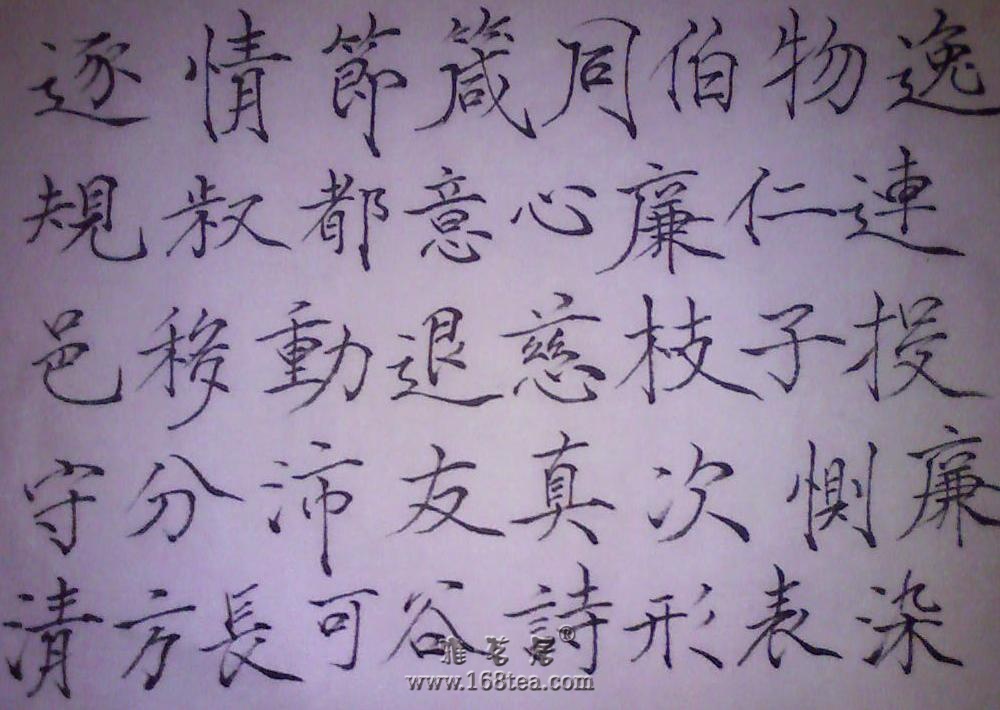 逐情節箴同伯物逸
規叔都意心廉仁連
邑移動退慈枝子投
守分沛友真次惻廉
清方長可谷詩形表染
雅茗居®
www.168tea.com